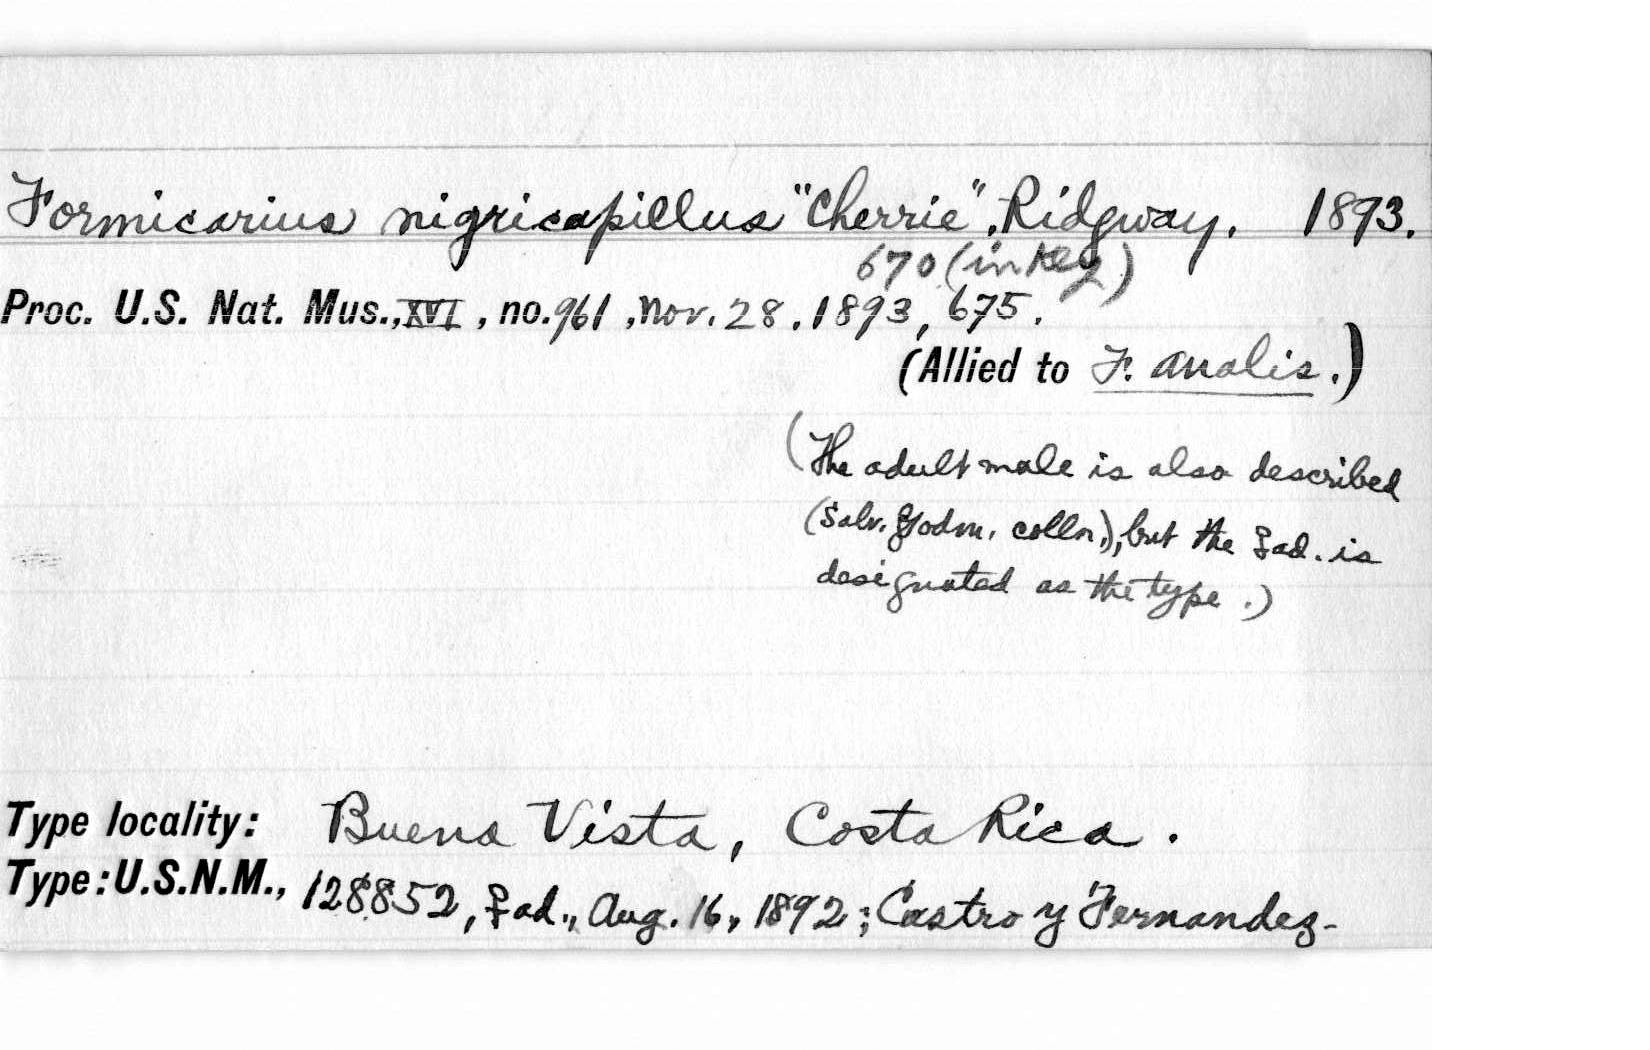 Formicarius nigricapillus "Cherrie", Ridgway. 1893.
670 (in key)
Proc. U.S. Nat. Mus., XVI, no. 961, Nov. 28, 1893, 675.
(Allied to F. analis.)
(The adult male is also described
(Salv. Godm. colln.), but the ♀ ad. is
designated as the type.)
Type locality: Buena Vista, Costa Rica.
Type: U.S.N.M., 128852, ♀ ad., Aug. 16, 1892; Castro y Fernandez-